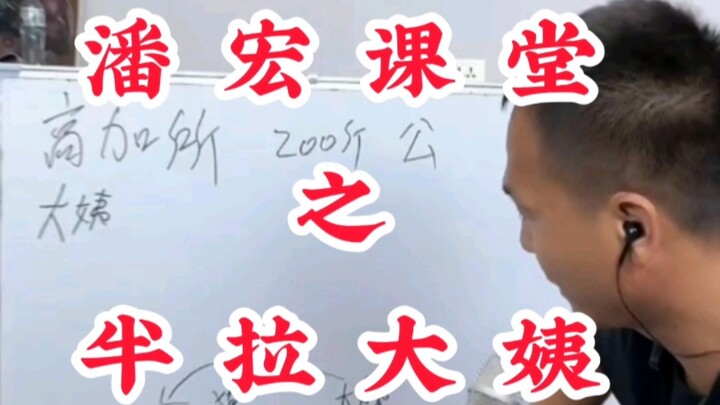 潘宏课堂
高加所 200斤 公
大姨
之
半拉大姨